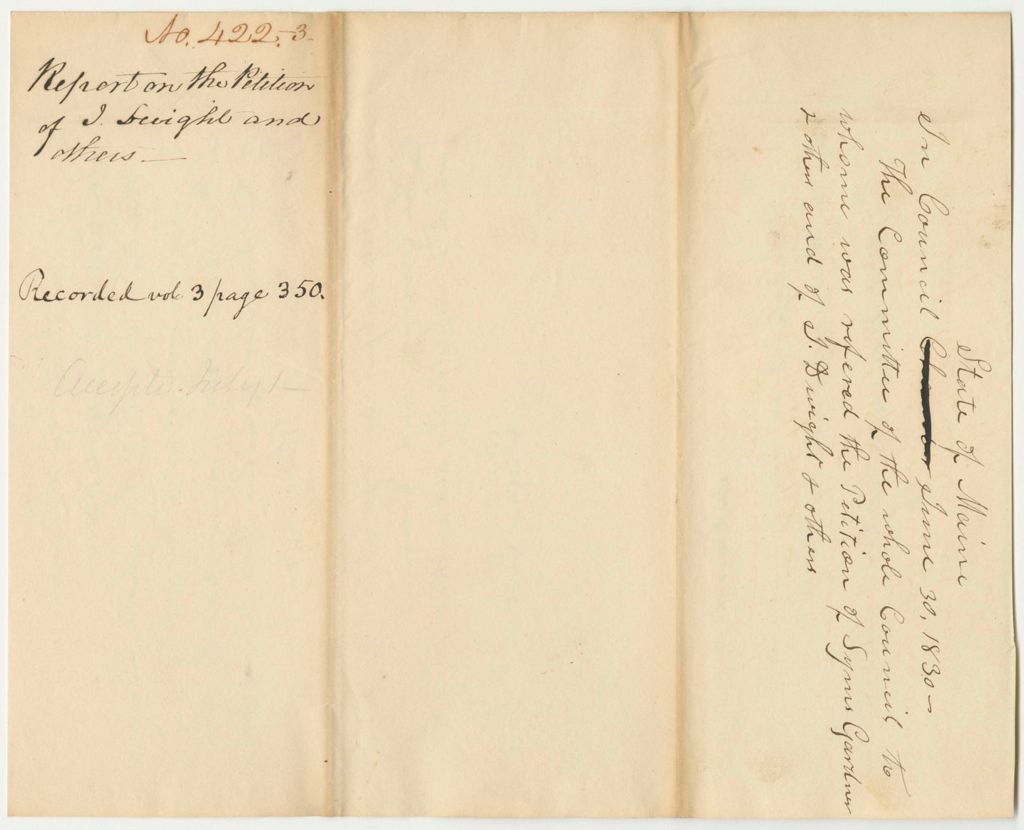 No. 422.-3.
Report on the Petition
of J. Dwight and
others —
Recorded vol. 3 page 350.
Accepted July 1 —
State of Maine
In Council June 30, 1830 —
The Committee of the whole Council to
whome was refered the Petition of Syms Gardner
& other and of J. Dwight & others